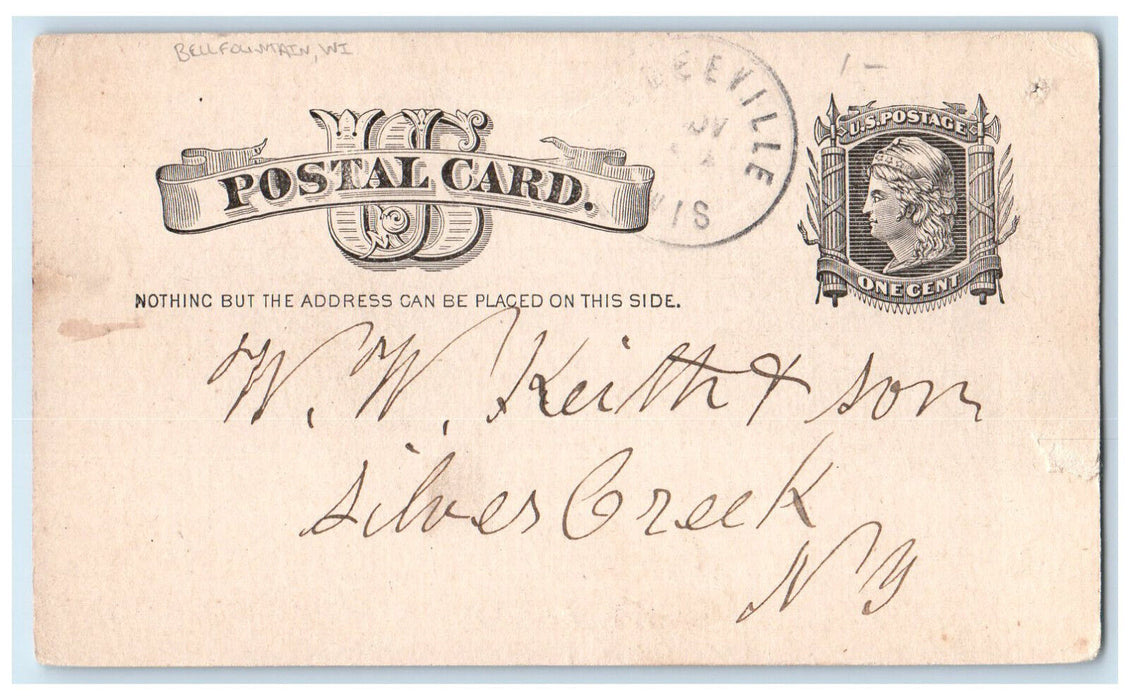 BELLFOUNTAIN, WI
1-
U.S. POSTAGE
US
POSTAL CARD.
WIS
ONE CENT
NOTHING BUT THE ADDRESS CAN BE PLACED ON THIS SIDE.
W. W. Keith & son
Silver Creek
N Y